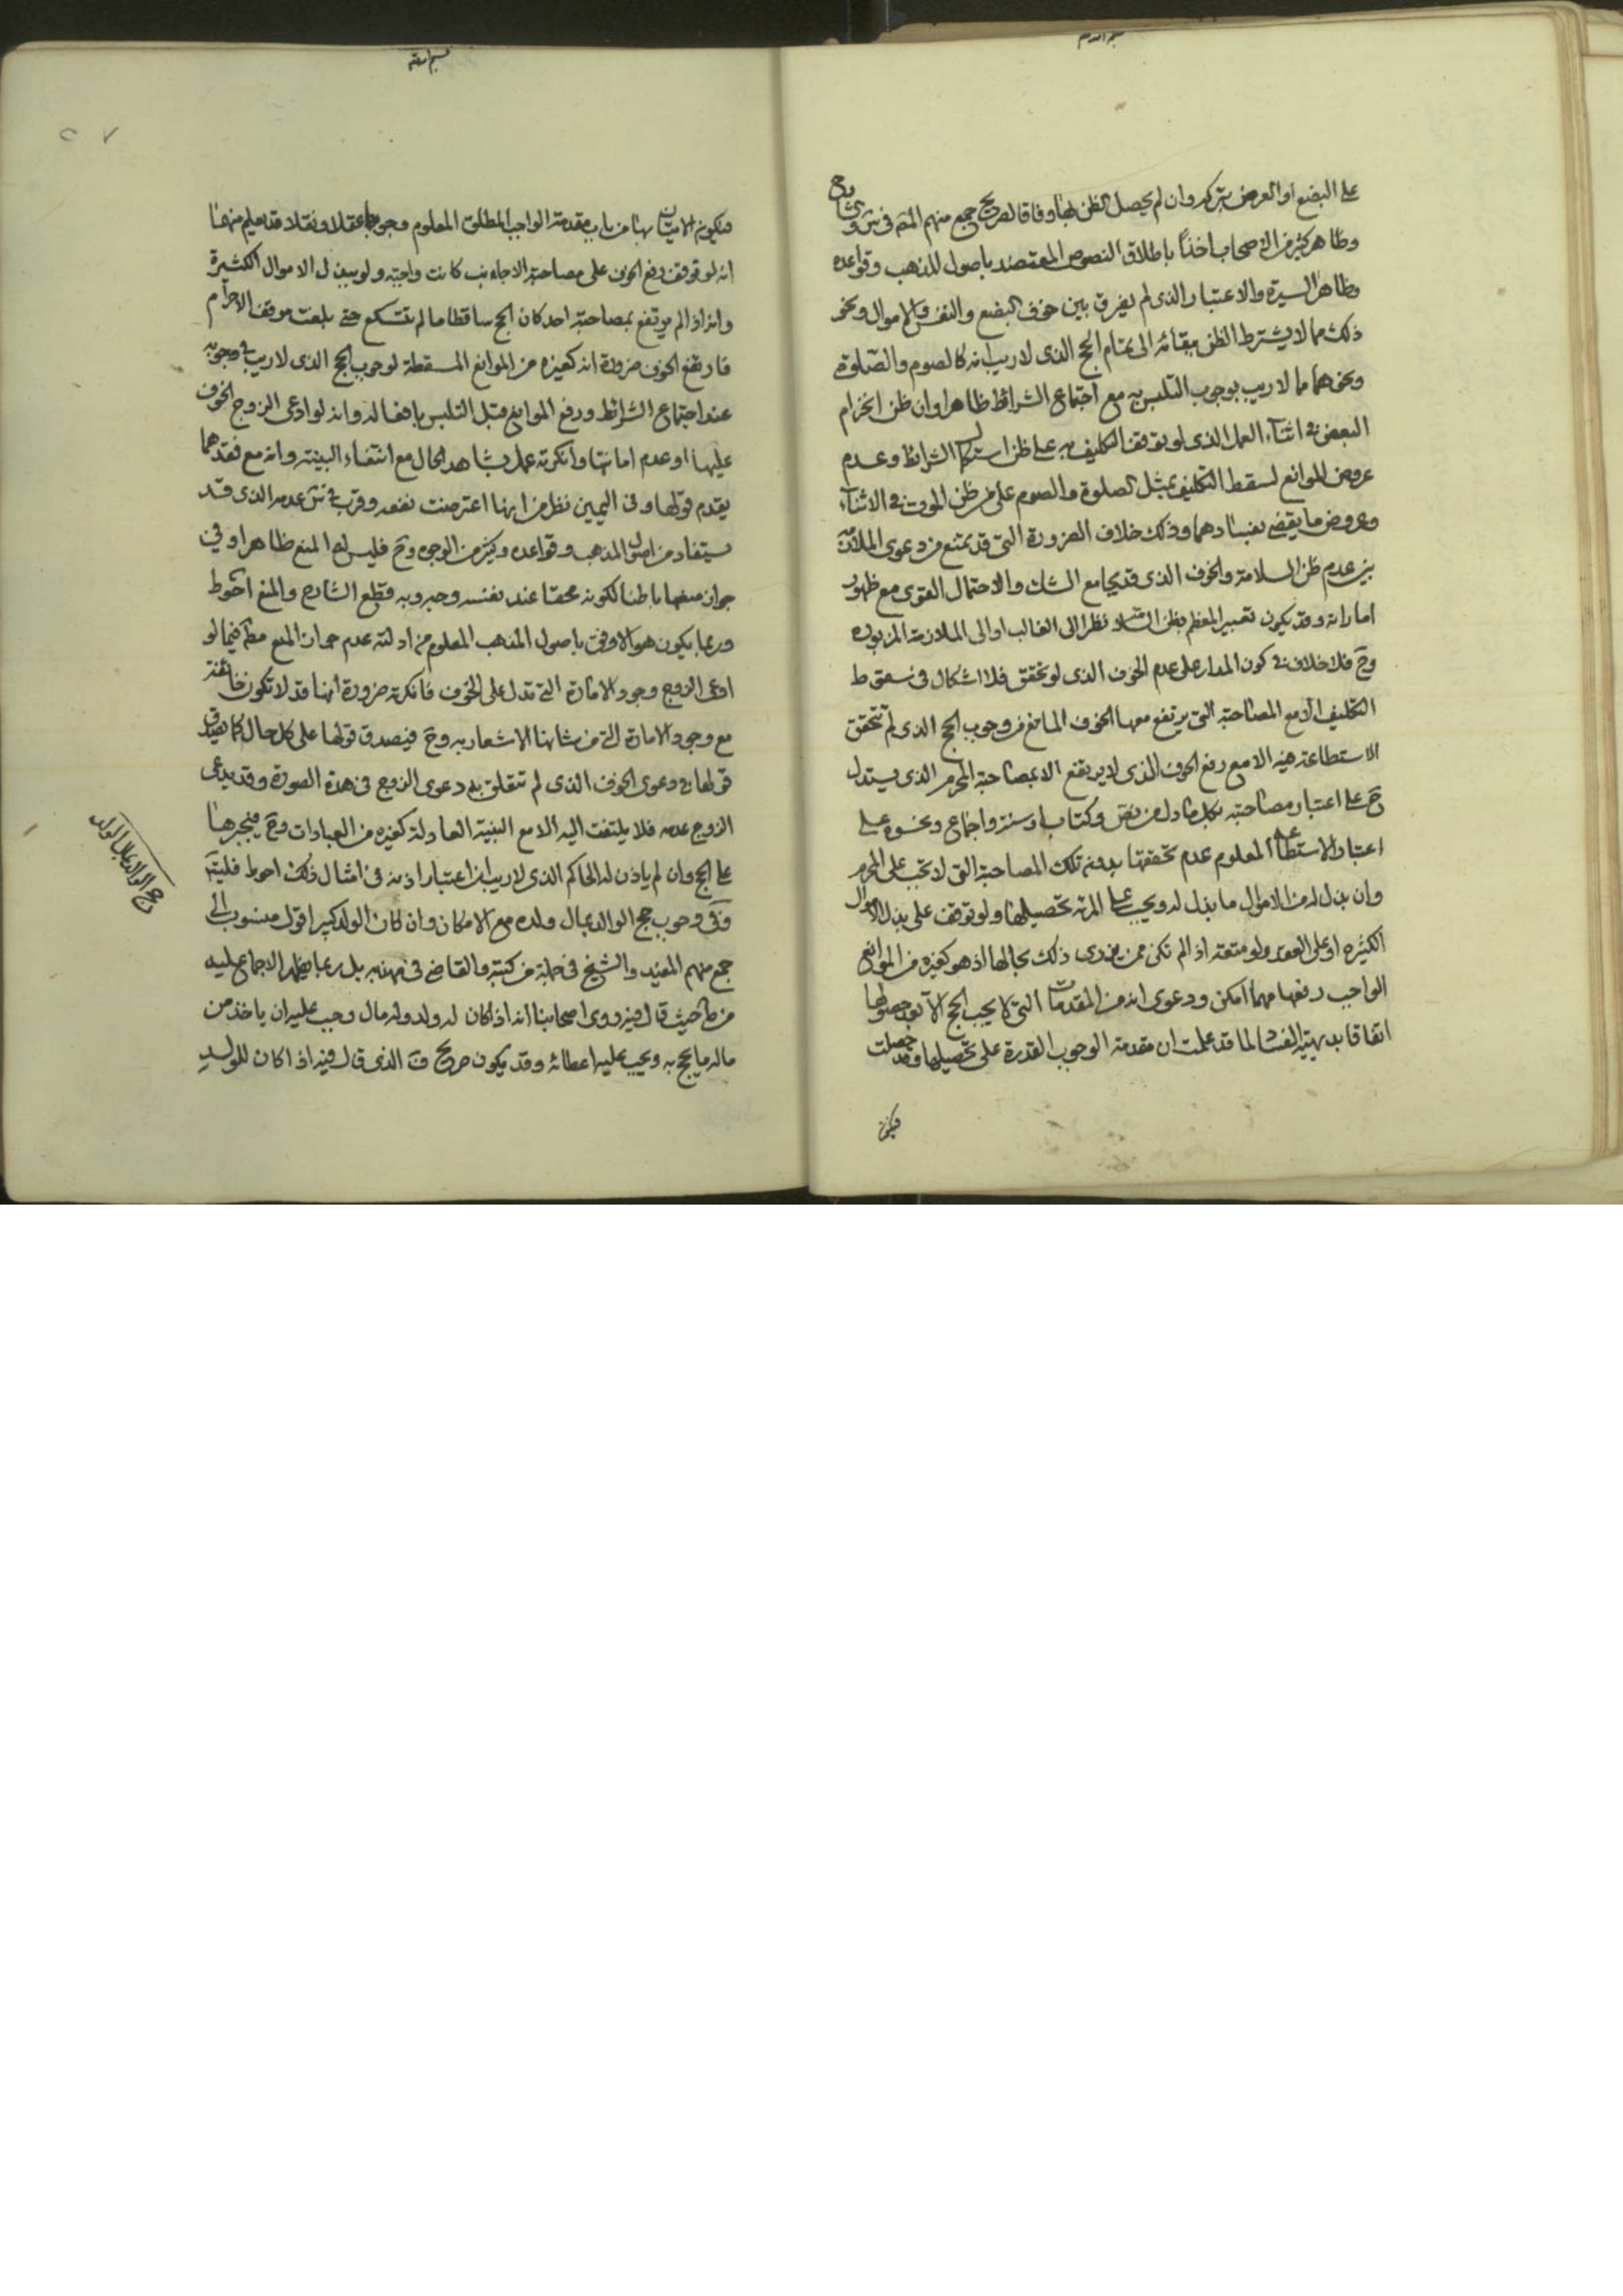 على البضع او العرض بتركه وان لم يحصل الظن بها وفاقا لصريح جمع منهم المصـ فى شروع
وظاهر كثير من الاصحاب اخذاً باطلاق النصوص المعتضد باصول المذهب وقواعده
وظاهر السيرة والاعتبار الذى لم يفرق بين خوف البضع والنفس والاموال ونحو
ذلك مما لا يشترط الظن ببقائه الى تمام الحج الذى لا ريب انه كالصوم والصلوة
ونحوهما مما لا ريب بوجوب التلبس به مع اجتماع الشرائط ظاهرا وان ظن انخرام
البعض فى اثناء العمل الذى لو توقف التكليف به على ظن استكمال الشرائط وعدم
عروض الموانع لسقط التكليف بمثل الصلوة والصوم على من ظن الموت فى الاثناء
وعروض ما يقضى بفسادهما وذلك خلاف الضرورة التى قد تمنع من دعوى الملازمة
بين عدم ظن السلامة والخوف الذى قد يجامع الشك والاحتمال القوى مع ظهور
اماراته وقد يكون تعبير المعظم بظن السلامة نظرا الى الغالب او الى الملازمة المزبوره
وح فلا خلاف فى كون المدار على عدم الخوف الذى لو تحقق فلا اشكال فى سقوط
التكليف الا مع المصاحبة التى يرتفع معها الخوف المانع من وجوب الحج الذى لم تتحقق
الاستطاعة فيه الا مع رفع الخوف الذى لا يرتفع الا بمصاحبة المحرم الذى يستدل
ح على اعتبار مصاحبته بكل ما دل من نص وكتاب وسنة واجماع ونحوه على
اعتبار الاستطاعة المعلوم عدم تحققها بدون تلك المصاحبة التى لا تجب على المحرم
وان بذل له من الاموال ما بذل له ويجب على المرئة تحصيلها ولو توقف على بذل الاموال
الكثيره او على العقد ولو متعة اذا لم تكن ممن يزدرى ذلك بحالها اذ هو كغيره من الموانع
الواجب رفعها مهما امكن ودعوى انه من المقدمات التى لا يجب الحج الا بعد حصولها
اتفاقا بديهية الفساد لما قد علمت ان مقدمة الوجوب القدرة على تحصيلها وقد حصلت
فيكون
فيكون الاتيان بها من باب مقدمة الواجب المطلق المعلوم وجوبها عقلا ونقلا قد يعلم منهنا
انه لو توقف رفع الخوف على مصاحبة الاجانب كانت واجبة ولو ببذل الاموال الكثيرة
وانه اذا لم يرتفع بمصاحبة احد كان الحج ساقطا ما لم تتسكع حتى بلغت موقف الاحرام
فارتفع الخوف ضرورة انه كغيره من الموانع المسقطة لوجوب الحج الذى لا ريب فى وجوبه
عند اجتماع الشرائط ورفع الموانع قبل التلبس بافعاله وانه لو ادعى الزوج الخوف
عليها او عدم امانتها وانكرته عمل بشاهد الحال مع انتفاء البينة وانه مع فقدهما
يقدم قولها وفى اليمين نظر من انها اعترفت نفعه وقرب فى س عدمه الذى قد
يستفاد من اصول المذهب وقواعده وكثير من الوجوه وح فليس له المنع ظاهرا وفى
جواز منعها باطنا لكونه محقا عند نفسه وجه وبه قطع الشارح والمنع احوط
وربما يكون هو الاوفق باصول المذهب المعلوم من ادلته عدم جواز المنع مطم فيما لو
ادعى الزوج وجود الامارة التى تدل على الخوف فانكرته ضرورة انها قد لا تكون خائفة
مع وجود الامارة التى من شانها الاشعار به وح فيصدق قولها على كل حال كما يصدق
قولها فى دعوى الخوف الذى لم تتعلق به دعوى الزوج فى هذه الصورة وقد يدعى
الزوج عدمه فلا يلتفت اليه الا مع البينة العادلة كغيره من العبادات وح فيجبرها
على الحج وان لم ياذن له الحاكم الذى لا ريب ان اعتبار اذنه فى امثال ذلك احوط فليتامل
وفى وجوب حج الوالد بمال ولده مع الامكان وان كان الولد كبيرا قول منسوب الى
جمع منهم المفيد والشيخ فى جملة من كتبه والقاضى فى مهذبه بل ربما يظهر الاجماع عليه
من ف حيث قال فيه روى اصحابنا انه اذا كان له ولد وله مال وجب عليه ان ياخذ من
ماله ما يحج به ويجب عليه اعطائه وقد يكون صريح ف الذى قال فيه اذا كان للولد
حج الوالد بمال الولد